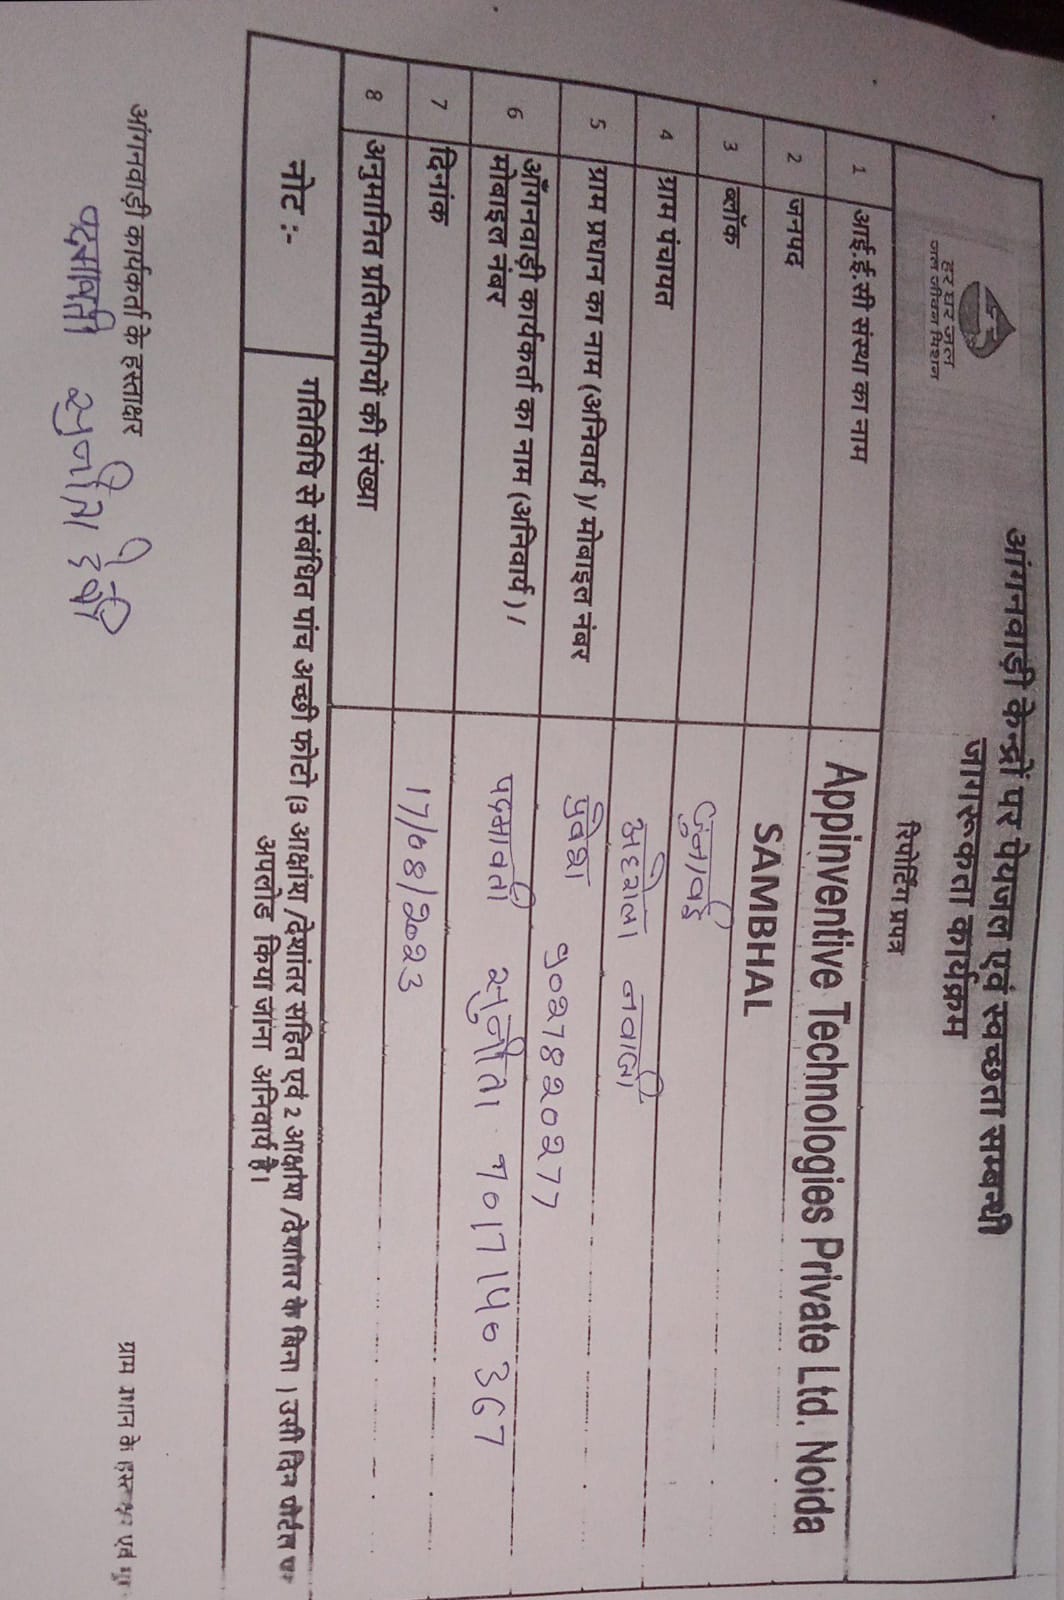 आंगनवाड़ी केन्द्रों पर पेयजल एवं स्वच्छता सम्बन्धी
जागरूकता कार्यक्रम
रिपोर्टिंग प्रपत्र
हर घर जल
जल जीवन मिशन
1 आई.ई.सी संस्था का नाम Appinventive Technologies Private Ltd. Noida
2 जनपद SAMBHAL
3 ब्लॉक जुनावई
4 ग्राम पंचायत
5 ग्राम प्रधान का नाम (अनिवार्य)/ मोबाइल नंबर
9027820277
6 आँगनवाड़ी कार्यकर्ता का नाम (अनिवार्य) /
मोबाइल नंबर
पदमावती सुनीता 7017140367
7 दिनांक 17/08/2023
8 अनुमानित प्रतिभागियों की संख्या
नोट :-
गतिविधि से संबंधित पांच अच्छी फोटो (3 आक्षांश /देशांतर सहित एवं 2 आक्षांश /देशांतर के बिना ) उसी दिन पोर्टल पर
अपलोड किया जाना अनिवार्य है।
आंगनवाड़ी कार्यकर्ता के हस्ताक्षर
पदमावती सुनीता देवी